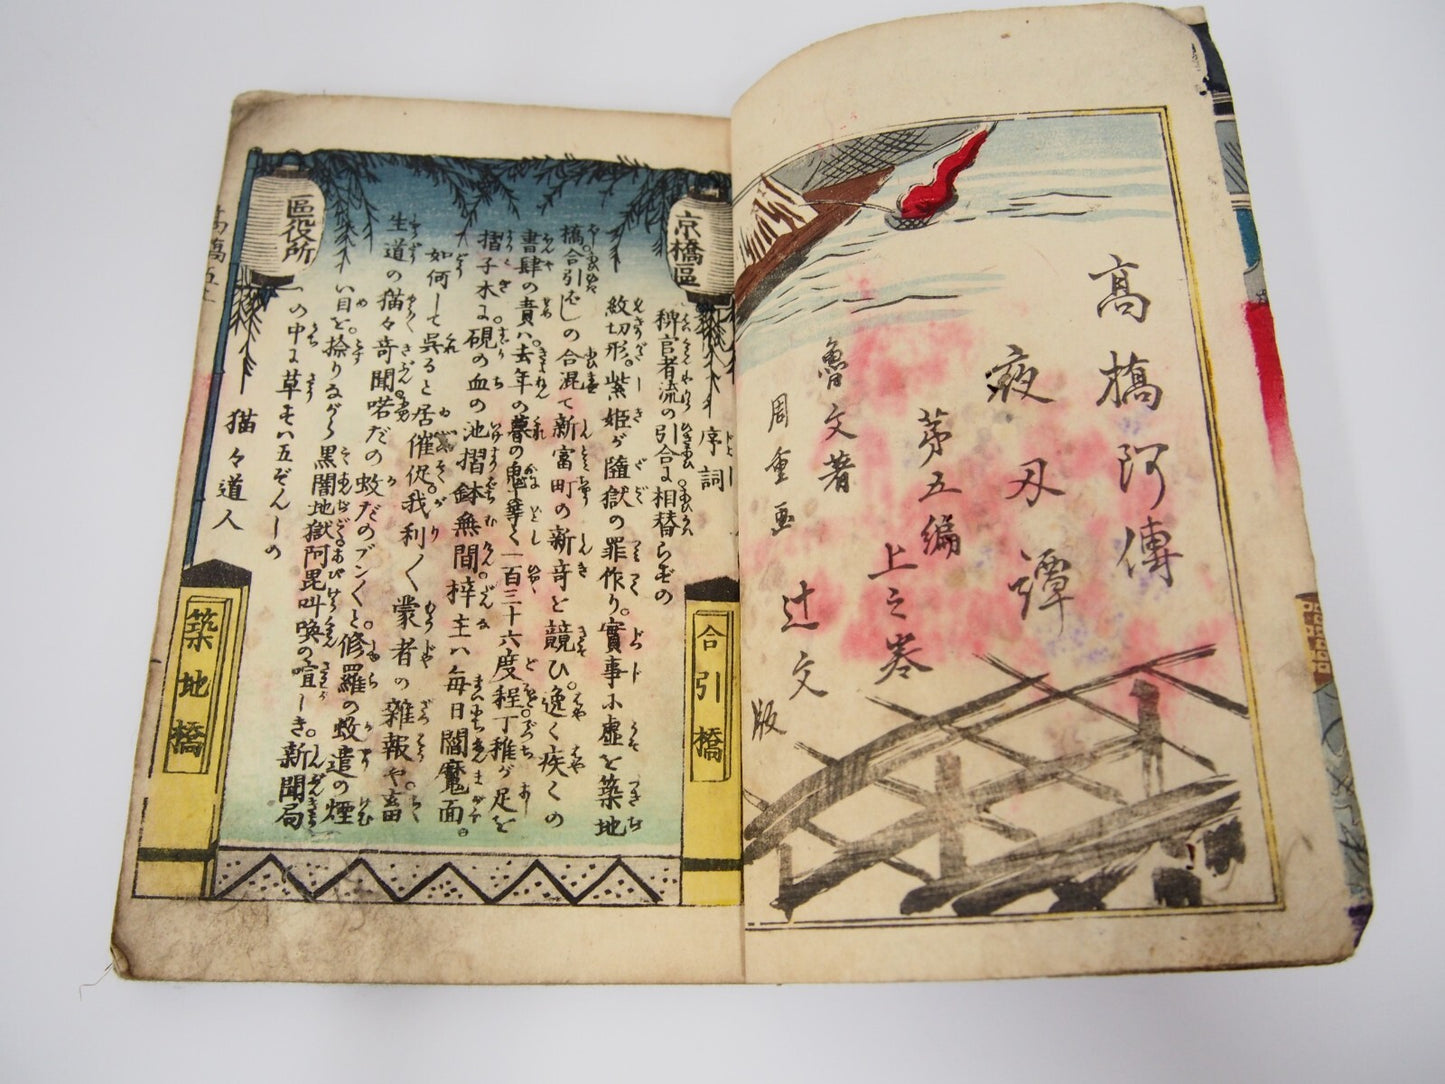 高橋阿傳
夜刃譚
第五編
上之巻
魯文著
周重画
辻文版
京橋區
區役所
序詞
稗官者流の引合に相替らずの
紋切形。紫姫が隨獄の罪作り。實事に虚を築地
橋合引ばしの合混て新富町の新奇と競ひ。逸く疾くの
書肆の責ハ去年の暮の鬼等く一百三十六度程丁稚が足を
摺子木に硯の血の池摺鉢無間梓主ハ毎日閻魔面。
如何して呉ると居催促。我利〱蒙者の雑報や畜
生道の猫々奇聞喏だの蚊だのブン〱と修羅の蚊遣の煙
い目を捻りながら黒闇地獄阿毘叫喚の喧しき新聞局
の中に草すハ五ぞんじの
猫々道人
合引橋
築地橋